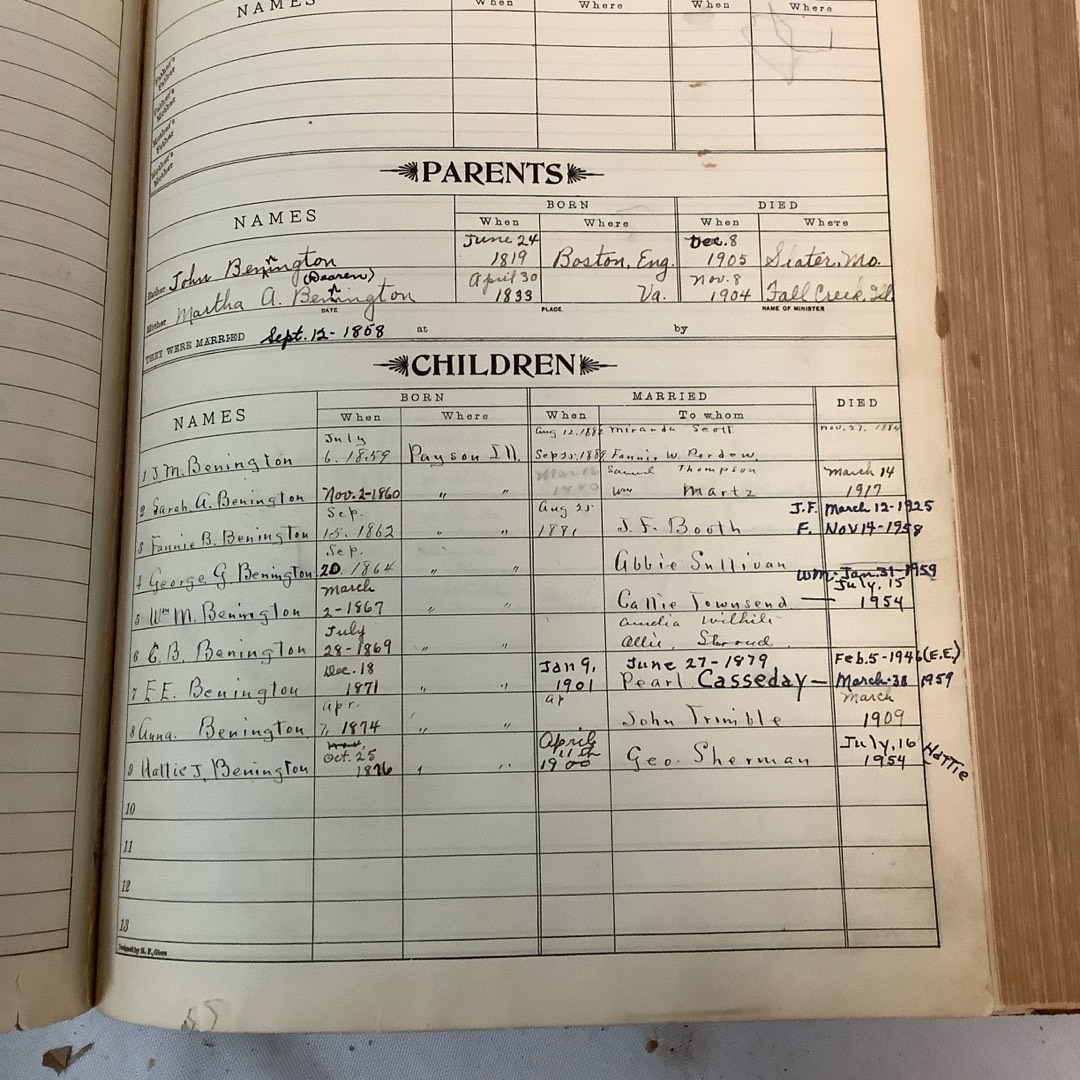 NAMES When Where When Where
Father's Father
Father's Mother
Mother's Father
Mother's Mother
PARENTS
NAMES BORN DIED
When Where When Where
June 24 Dec. 8
Father John Bennington 1819 Boston, Eng. 1905 Slater, Mo.
April 30 Nov. 8
Mother Martha A. Bennington 1833 Va. 1904 Fall Creek, Ill
DATE PLACE NAME OF MINISTER
THEY WERE MARRIED Sept. 12 - 1858 at by
CHILDREN
NAMES BORN MARRIED DIED
When Where When To whom
July Aug 12. Miranda Scott Nov. 27.
1 J.M. Benington 6. 1859 Payson Ill. Fannie W.
March Samuel Thompson March 14
2 Sarah. A. Benington Nov. 2 - 1860 " " Wm Martz 1917
Sep. Aug 25 J.F. March 12 - 1925
3 Fannie B. Benington 15. 1862 " " 1881 J. F. Booth F. Nov 14 - 1958
Sep.
4 George G. Benington 20 1864 " " Abbie Sullivan Wm. Jan. 31 - 1959
March July, 15
5 Wm M. Benington 2 - 1867 " " Callie Townsend — 1954
July
6 C. B. Benington 28 - 1869 " " Allie Stroud
Dec. 18 Jan 9, June 27 - 1879 Feb. 5 - 1946 (E.E.)
7 E E. Benington 1871 " " 1901 Pearl Casseday — March 1959
Apr. ap March
8 Anna. Benington 7, 1874 " " John Trimble 1909
Oct. 25 April 11th July, 16
9 Hattie J, Benington 1876 " " 1900 Geo. Sherman 1954 Hattie
10
11
12
13